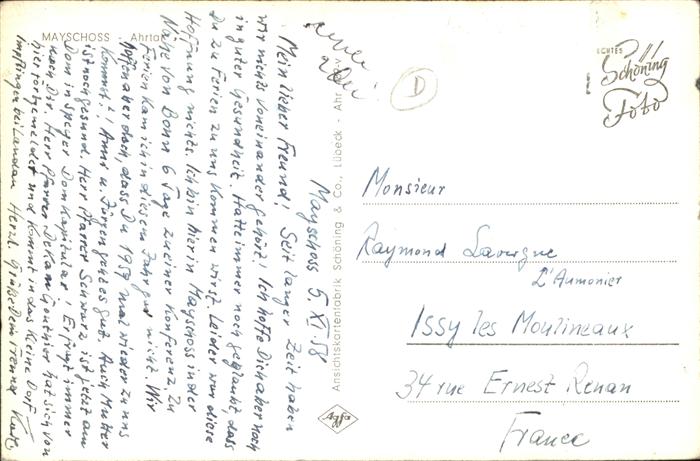 MAYSCHOSS Ahrtal
Mayschoss 5. XI 58
Mein lieber Freund! Seit langer Zeit haben
wir nichts voneinander gehört! Ich hoffe Dich aber noch
in guter Gesundheit. Hatte immer noch geglaubt, dass
Du zu Ferien zu uns kommen wirst. Leider war diese
Hoffnung nichts. Ich bin hier in Mayschoss in der
Nähe von Bonn 6 Tage zu einer Konferenz. Zu
Ferien kam ich in diesem Jahr gar nicht. Wir
hoffen aber doch, dass Du 1959 mal wieder zu uns
kommst! Anni u. Jürgen geht es gut. Auch Mutter
ist noch gesund. Herr Pfarrer Schwarz ist jetzt am
Dom in Speyer Domkapitular! Er frägt immer
nach Dir. Herr Pfarrer Dekan Gonthier hat sich von
hier fortgemeldet und kommt in das kleine Dorf
Impflingen bei Landau. Herzl. Grüße Dein Freund Kurt
Ansichtskartenfabrik Schöning & Co., Lübeck - Ahr
D
ECHTES
Schöning
Foto
Agfa
Monsieur
Raymond Lavergne
L'Aumonier
Issy les Moulineaux
34 rue Ernest Renan
France